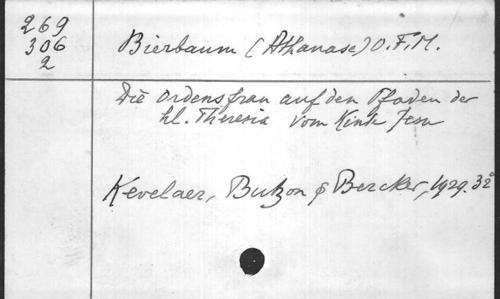 269
306
2
Bierbaum (Athanase) O.F.M.
Die Ordensfrau auf den Pfaden der
hl. Theresia vom Kinde Jesu
Kevelaer, Butzon & Bercker, 1929. 32º